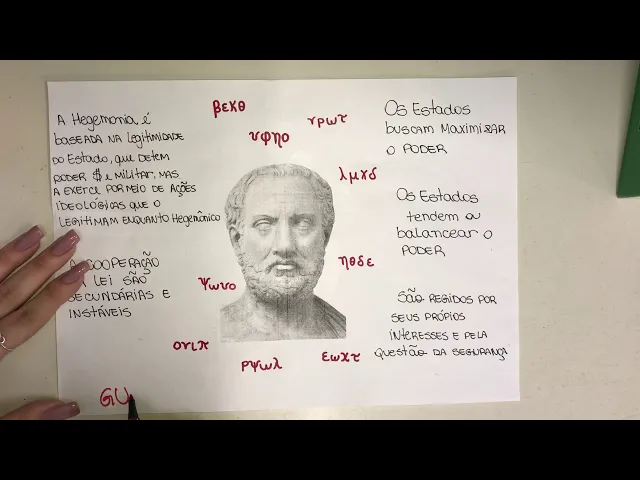 A Hegemonia é
baseada na legitimidade
do Estado, que detem
poder $ e militar, mas
a exerce por meio de ações
ideológicas que o
legitimam enquanto Hegemônico
A cooperação
lei são
secundárias e
instáveis
βεκθ
υρωτ
υφηο
λμχδ
ηθδε
ψωνο
ονιπ
ρψωλ
εωχτ
Os Estados
buscam maximizar
o poder
Os Estados
tendem a
balancear o
poder
São regidos por
seus própios
interesses e pela
questão da segurança
GU